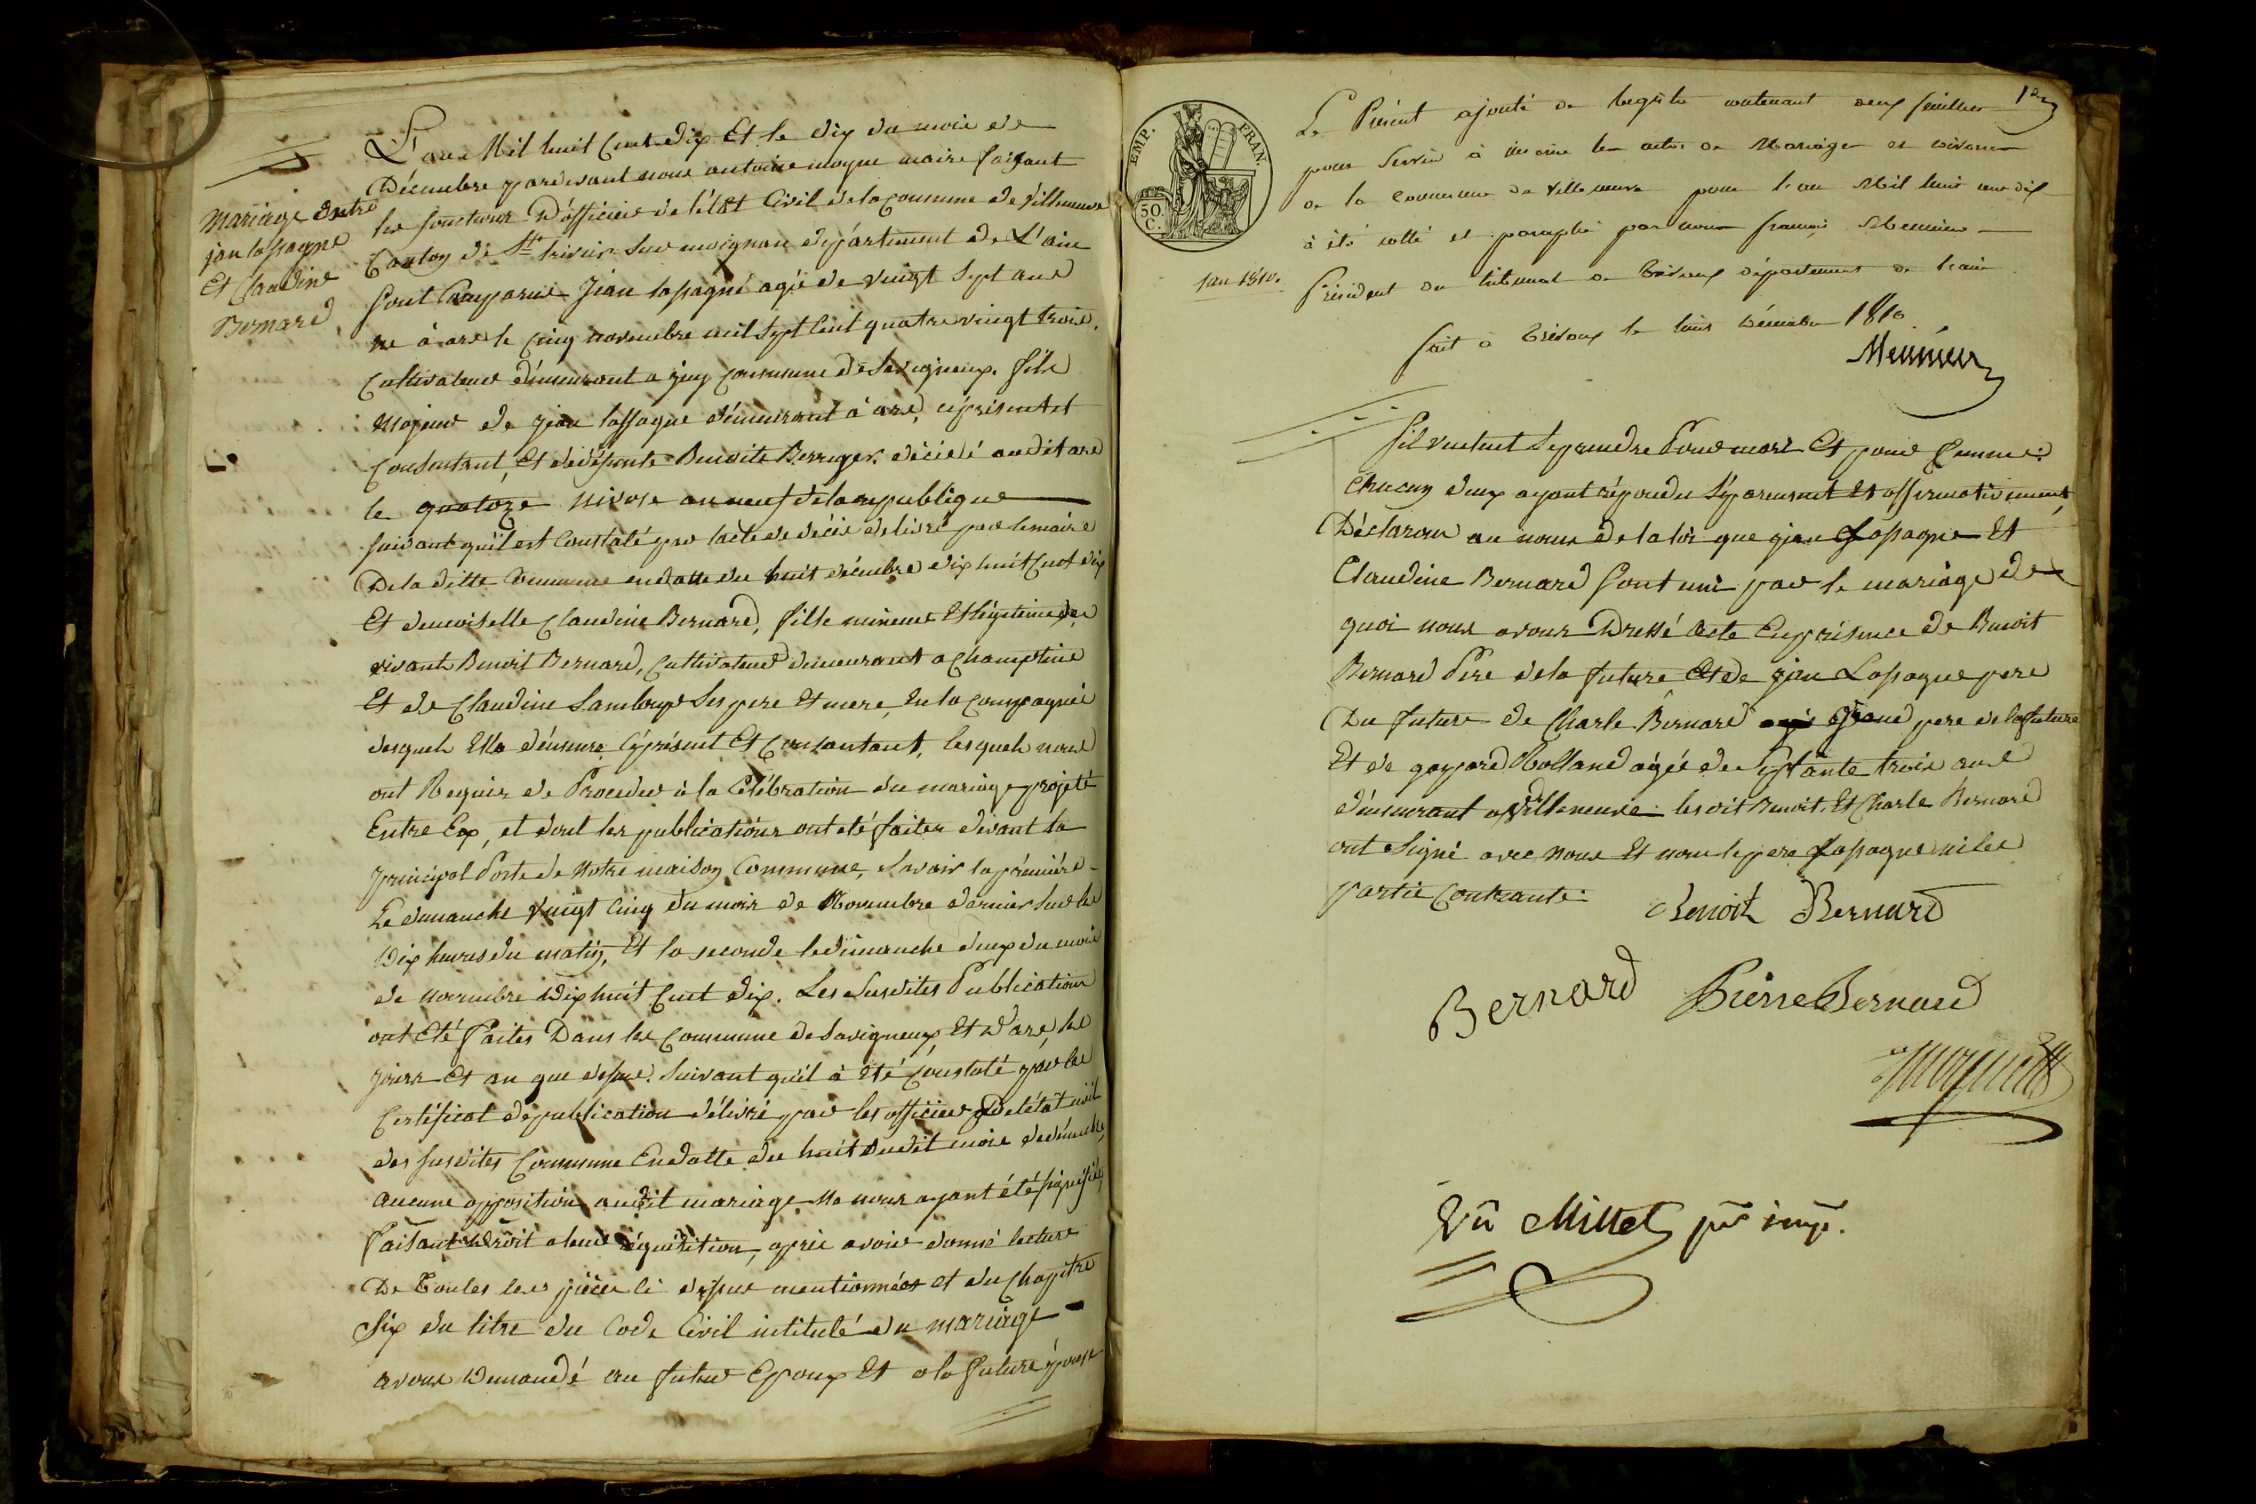 Mariage Entre
jan lapagne
Et Claudine
Bernard
L'an Mil huit Cent dix Et le dix du mois de
Décembre pardevant nous antoine moyne maire faisant
les fonctions D'officier de l'état Civil de la commune de Villeneuve
Canton de St trivier sur moignan département de L'ain
Sont Comparus Jean lapagne agé de vingt Sept ans
né à ars le cinq novembre mil Sept Cent quatre vingt trois
Cultivateur démeurant a juy commune de Savigneux. fils
Majeur de jean lassagne démeurant à ars, ciprésent et
Consentant, Et de défunte Benoite Berruyer décédé audit ars
le quatoze nivose an neuf de la republique
suivant qu'il est Constaté par l'acte de décés delivré par le maire
De la ditte Commune en datte du huit décembre dix huit Cent dix
Et demoiselle Claudine Bernard, fille mineure Et légitime de
vivant Benoit Bernard, Cultivateur demeurant a Champtein
Et de Claudine Lamboux Ses pere Et mere, En la compagnie
desquels Elle démeure ciprésent Et Consantant, lesquels nous
ont Requis de Proceder à la Célébration du mariage projeté
Entre Eux, et dont les publications ont eté faites devant la
principal Porte de Notre maison Commune, Savoir la prémiére
Le dimanche Vingt Cinq du mois de Novembre dernier sur les
Dix heures du matin, Et la seconde le dimanche deux du mois
de novembre Dix huit Cent dix. Les Susdites Publications
ont Eté Faites Dans les Commune de Savigneux Et D'ars, les
jours Et an que dessus. Suivant qu'il à Eté Constaté par les
Certificat de publication délivré par les officiers De l'état civil
des susdites Commune En datte du huit dudit mois de décembre,
aucune opposition audit mariage Ne nous ayant été signifiée,
Faisant Droit a leur réquisition, aprés avoir donné lecture
De Toutes les piéces ci dessus mentionnées et du Chapitre
Six du titre du Code Civil intitulé du mariage
avons Demandé au futur Epoux Et a la future épouse
EMP. FRAN.
50. C.
pour 1810.
Le Présent ajouté de registre contenant deux feuillets
pour Servir à inscrire les actes de Mariage et divorce
de la commune de Villeneuve pour l'an Mil huit cent dix
à été cotté et paraphé par nous françois Meunier
Président du tribunal de Trévoux département de l'ain
fait à Trévoux le trois Décembre 1810.
Meunier
S'il veulent Se prendre Pour mari Et pour Femme:
Chacun d'eux ayant répondu Séparement Et affirmativement,
Déclarons au nom de la loi que jean Lapagne Et
Claudine Bernard Sont uni par le mariage de
quoi nous avons Dressé Acte En présence de Benoit
Bernard Pere de la future Et de jean Lapagne pere
Du future de Charle Bernard grand pere de la future
Et de gaspard Rolland agée de Septante trois ans
démeurant a Villeneuve lesdit Benoit Et Charle Bernard
ont Signé avec nous Et non le pere Lapagne ni les
partie Contrante.
Benoit Bernard
Bernard Pierre Bernard
Vû Millet pr imp.